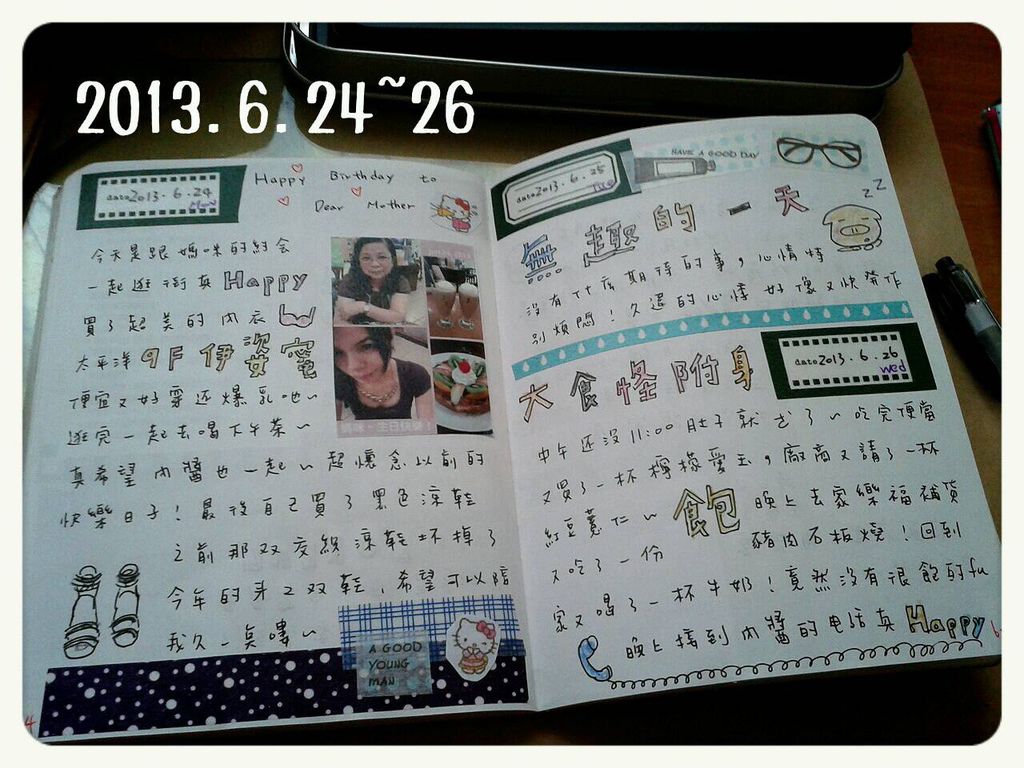 2013.6.24~26
date 2013.6.24
Mon
Happy Birthday to
Dear Mother
今天是跟媽咪的約會
一起逛街真Happy
買了超美的內衣
太平洋9F伊姿蜜
便宜又好穿還爆乳吔~
逛完一起去喝下午茶~
真希望內醬也一起~超懷念以前的
快樂日子!最後自己買了黑色涼鞋
之前那双交給涼鞋坏掉了
今年的第2双鞋,希望可以陪
我久一点嘍~
媽咪~生日快樂!
A GOOD
YOUNG
MAN
4
date 2013.6.25
Tue
HAVE A GOOD DAY
無趣的一天
zz
沒有什麼期待的事,心情特
別煩悶!久違的心悸好像又快發作
大食怪附身
date 2013.6.26
wed
中午還沒11:00肚子就扁了~吃完便當
又買了一杯檸檬愛玉,廠商又請了一杯
紅豆薏仁~飽晚上去家樂福補貨
又吃了一份豬肉石板燒!回到
家又喝了一杯牛奶!竟然沒有很飽的fu
晚上接到內醬的电话真Happy